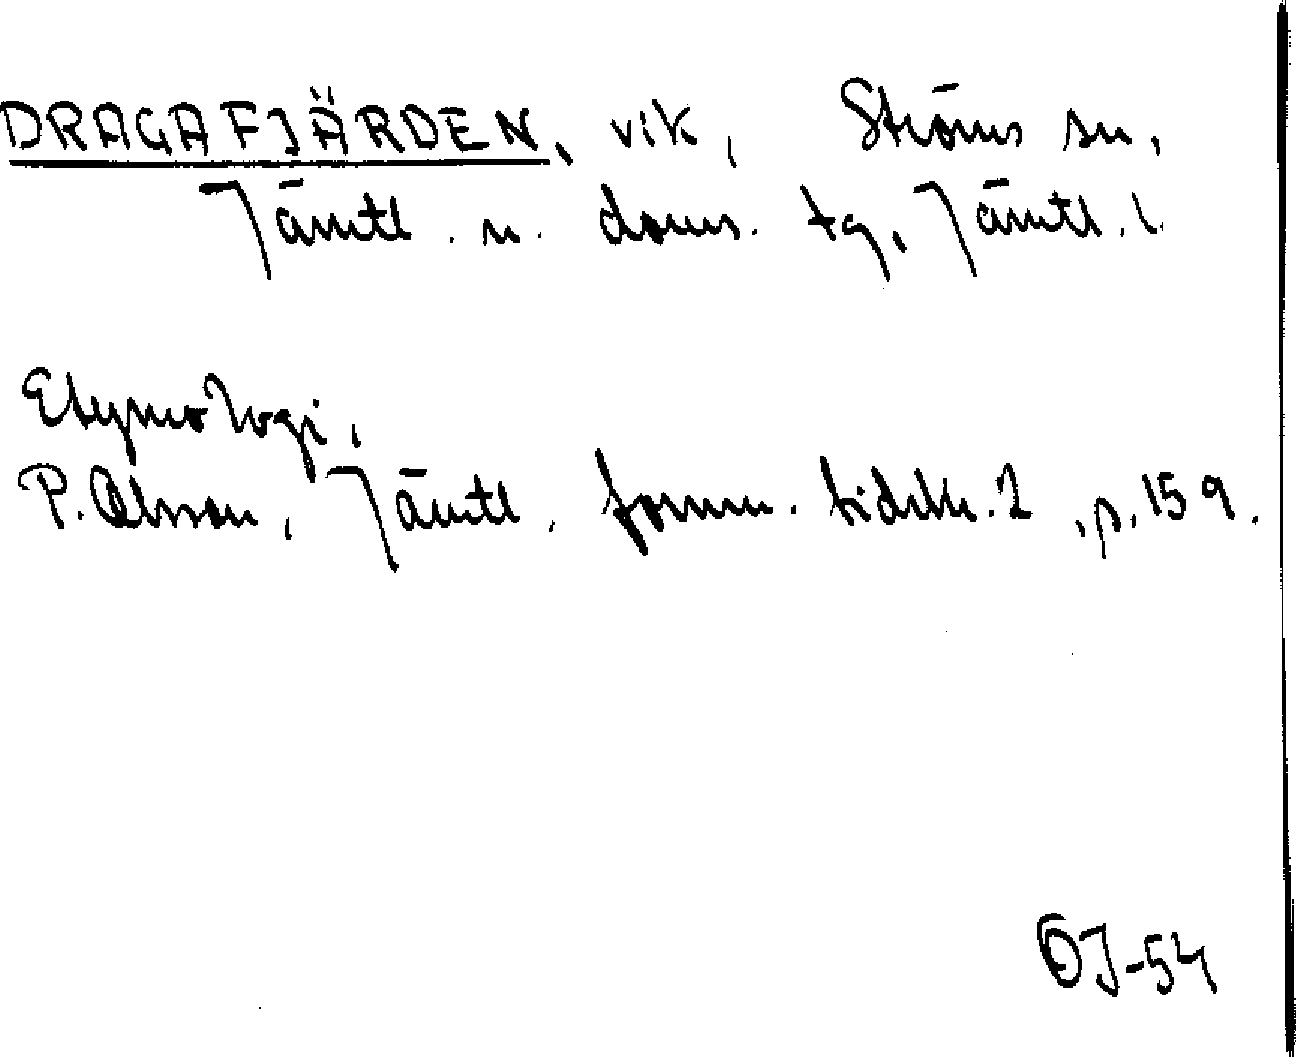 DRAGAFJÄRDEN, vik, Ströms sn,
Jämtl. n. doms. tg, Jämtl. l.
Etymologi,
P. Olsson, Jämtl. fornm. tidskr. 2, p. 159.
OJ-54